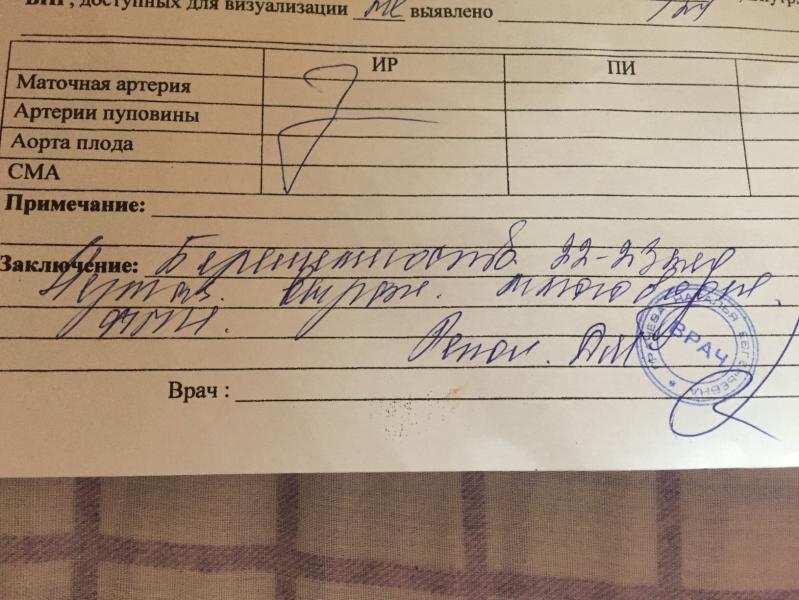 , доступных для визуализации не выявлено
ИР ПИ
Маточная артерия
Артерии пуповины
Аорта плода
СМА
Примечание:
Заключение: Беременность 22-23 нед
выраж. многоводие.
Реком.
ВРАЧ
НАТАЛЬЯ
Врач :